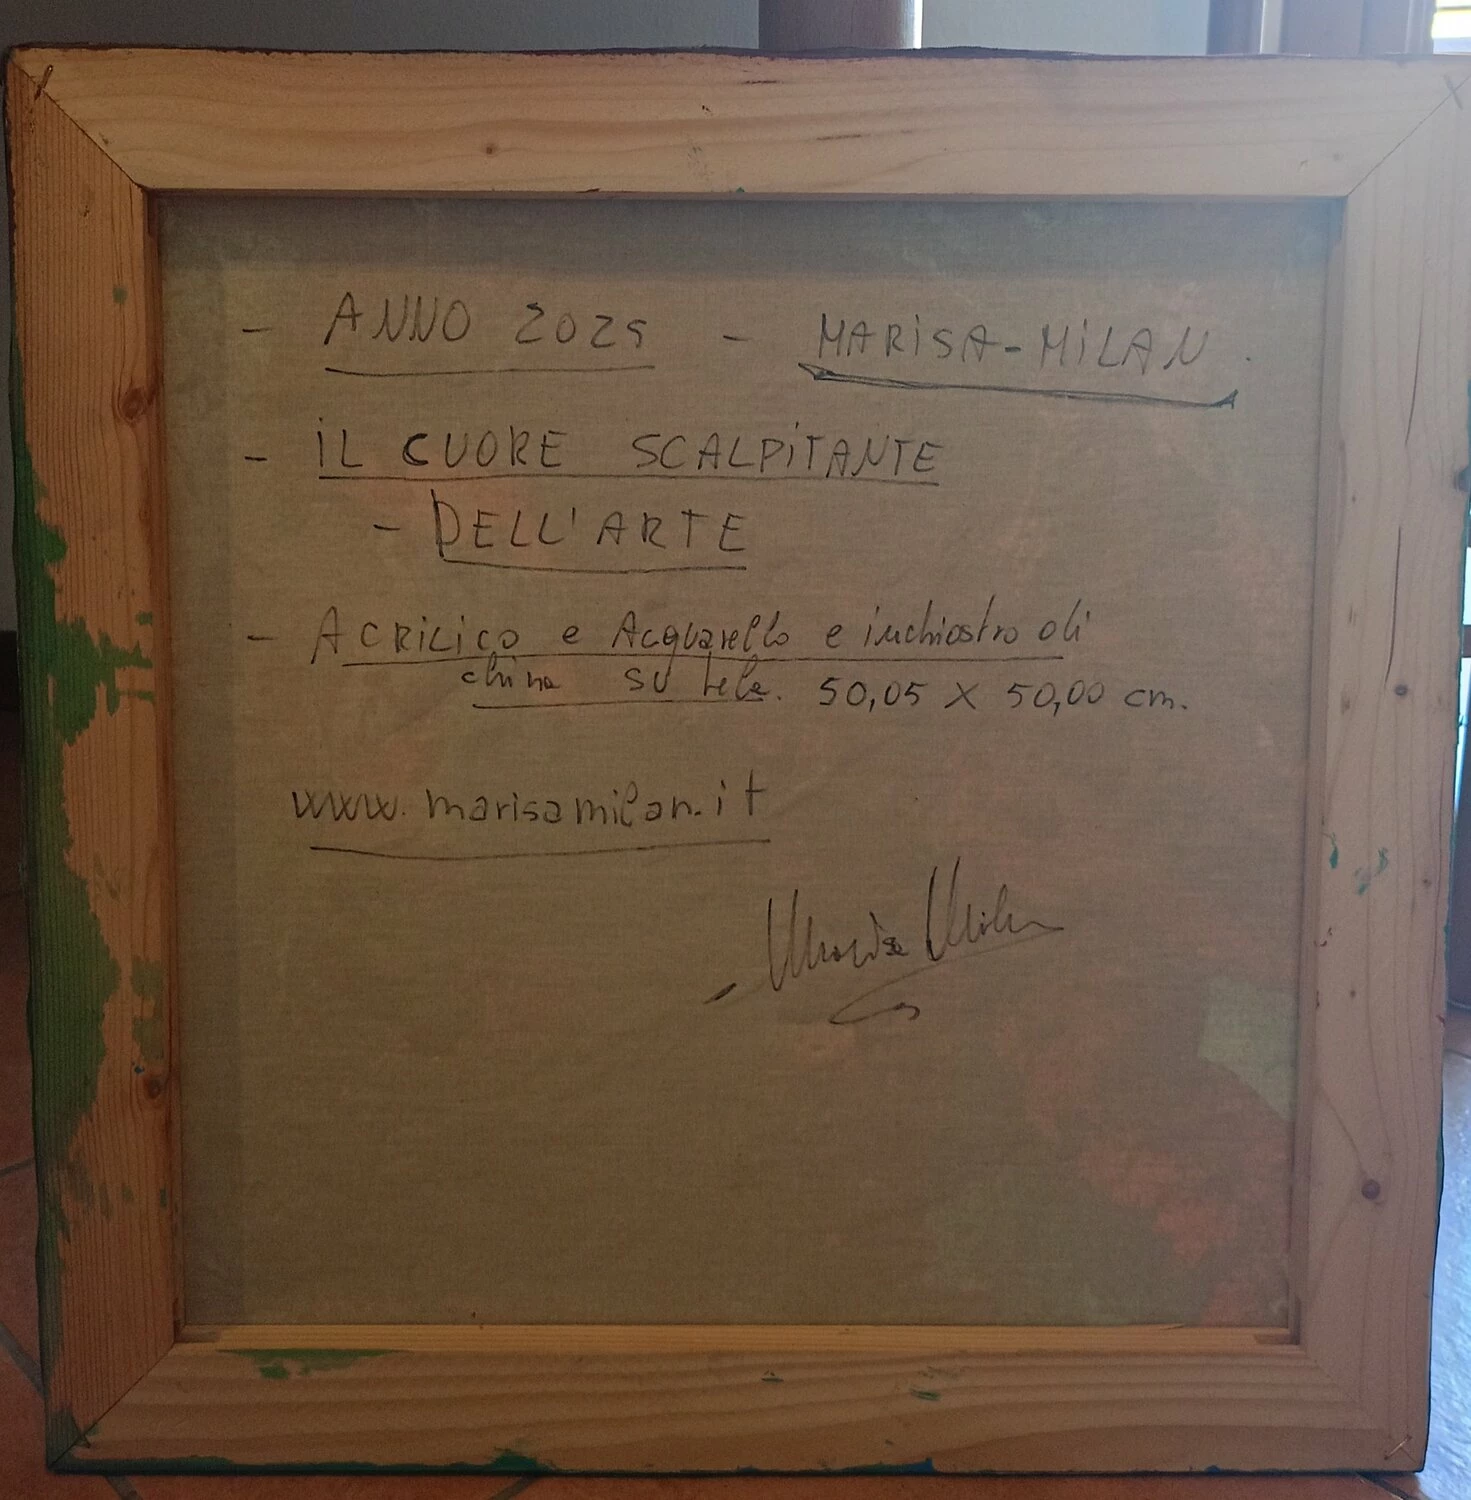 - ANNO 2025 - MARISA-MILAN.
- IL CUORE SCALPITANTE
- DELL'ARTE
- ACRILICO e Acquarello e inchiostro di
china su tela. 50,05 X 50,00 cm.
www.marisamilan.it
Marisa Milan